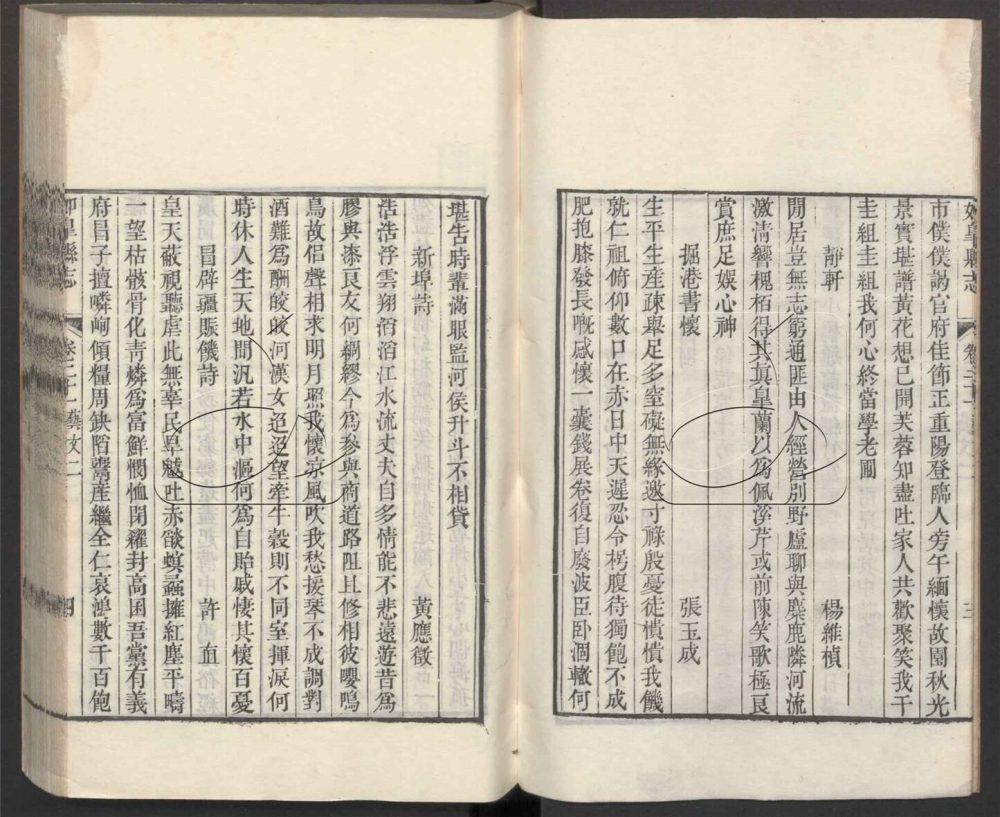 如皋縣志
卷二十一
三
市僕僕謁官府佳節正重陽登臨人旁午緬懷故園秋光
景實堪譜黃花想已開芙蓉知盡吐家人共歡聚笑我干
圭組圭組我何心終當學老圃
靜軒
楊維楨
閒居豈無志窮通匪由人經營別野廬聊與麋鹿隣河流
激清響槐柏得其真皇蘭以為佩溪芹或前陳笑歌極良
賞庶足娛心神
掘港書懷
張玉成
生平生產疎舉足多窒礙無緣邀寸祿殷憂徒憒憒我饑
就仁祖俯仰數口在赤日中天遲忍令枵腹待獨飽不成
肥抱膝發長嘅感懷一囊錢展卷復自廢波臣卧涸轍何
堪告時輩滿眼監河侯升斗不相貸
新埠詩
黃應徵
浩浩浮雲翔滔滔江水流丈夫自多情能不悲遠遊昔為
膠與漆良友何綢繆今為參與商道路阻且修相彼嚶鳴
鳥故侶聲相求明月照我懷京風吹我愁援琴不成調對
酒難為酬皎皎河漢女迢迢望牽牛穀則不同室揮淚何
時休人生天地間汎若水中漚何為自貽戚悽其懷百憂
冒辟疆賑饑詩
許直
皇天蔽視聽虐此無辜民旱魃吐赤燄螟蟊擁紅塵平疇
一望枯骸骨化青燐為富鮮憫恤閉糴封高囷吾黨有義
府冒子擅嶙峋傾糧周缺陷鬻產繼全仁哀鴻數千百飽
如皋縣志
卷二十一 藝文二
四